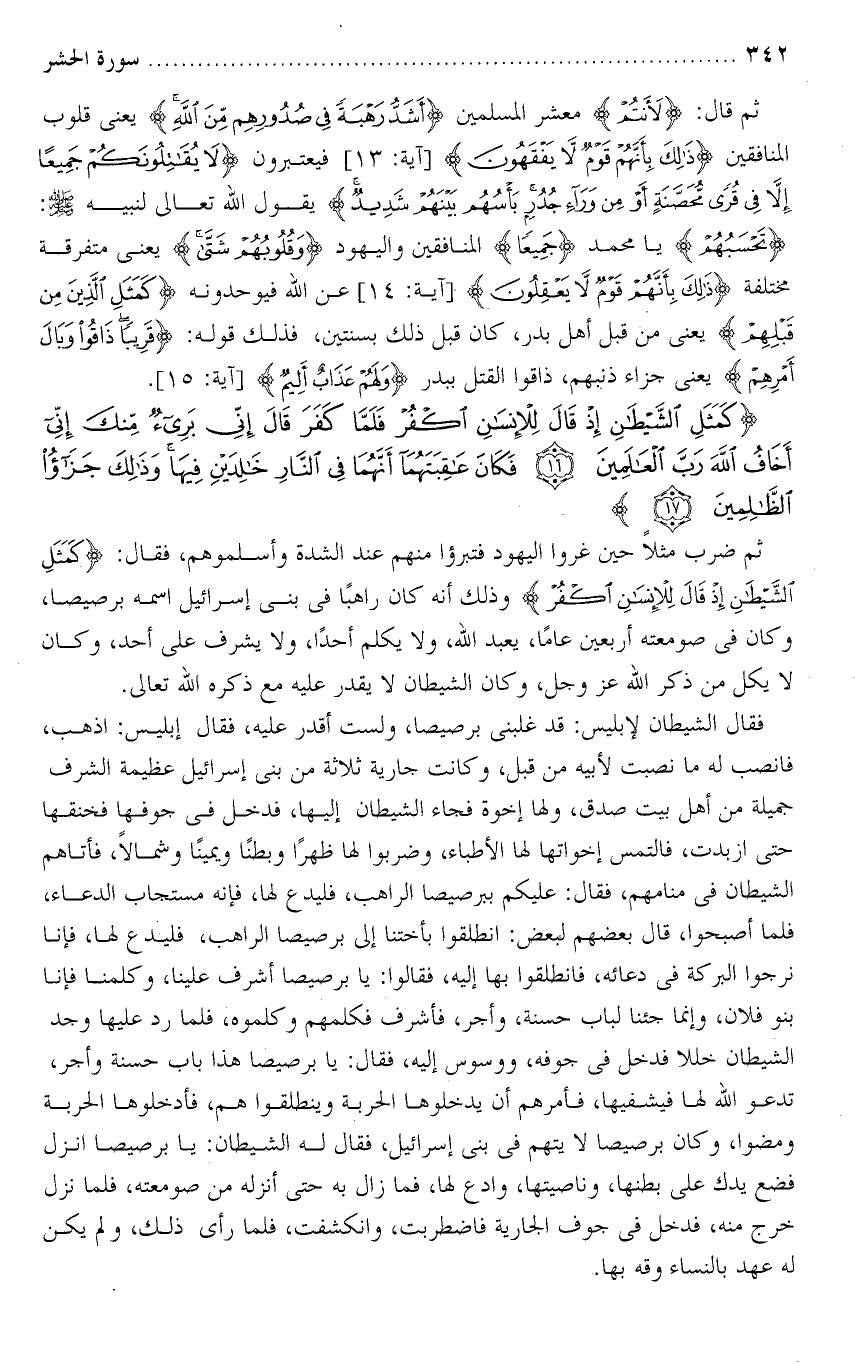 ٣٤٢ ........................................ سورة الحشر
ثم قال: ﴿لَأَنتُمْ﴾ معشر المسلمين ﴿أَشَدُّ رَهْبَةً فِى صُدُورِهِم مِّنَ ٱللَّهِ﴾ يعنى قلوب
المنافقين ﴿ذَٰلِكَ بِأَنَّهُمْ قَوْمٌ لَّا يَفْقَهُونَ﴾ [آية: ١٣] فيعتبرون ﴿لَا يُقَٰتِلُونَكُمْ جَمِيعًا
إِلَّا فِى قُرًى مُّحَصَّنَةٍ أَوْ مِن وَرَآءِ جُدُرٍ بَأْسُهُم بَيْنَهُمْ شَدِيدٌ﴾ يقول الله تعالى لنبيه ﷺ:
﴿تَحْسَبُهُمْ﴾ يا محمد ﴿جَمِيعًا﴾ المنافقين واليهود ﴿وَقُلُوبُهُمْ شَتَّىٰ﴾ يعنى متفرقة
مختلفة ﴿ذَٰلِكَ بِأَنَّهُمْ قَوْمٌ لَّا يَعْقِلُونَ﴾ [آية: ١٤] عن الله فيوحدونه ﴿كَمَثَلِ ٱلَّذِينَ مِن
قَبْلِهِمْ﴾ يعنى من قبل أهل بدر، كان قبل ذلك بسنتين، فذلك قوله: ﴿قَرِيبًا ذَاقُوا۟ وَبَالَ
أَمْرِهِمْ﴾ يعنى جزاء ذنبهم، ذاقوا القتل ببدر ﴿وَلَهُمْ عَذَابٌ أَلِيمٌ﴾ [آية: ١٥].
﴿كَمَثَلِ ٱلشَّيْطَٰنِ إِذْ قَالَ لِلْإِنسَٰنِ ٱكْفُرْ فَلَمَّا كَفَرَ قَالَ إِنِّى بَرِىٓءٌ مِّنكَ إِنِّىٓ
أَخَافُ ٱللَّهَ رَبَّ ٱلْعَٰلَمِينَ ١٦ فَكَانَ عَٰقِبَتَهُمَآ أَنَّهُمَا فِى ٱلنَّارِ خَٰلِدَيْنِ فِيهَا وَذَٰلِكَ جَزَٰٓؤُا۟
ٱلظَّٰلِمِينَ ١٧﴾
ثم ضرب مثلاً حين غروا اليهود فتبرؤا منهم عند الشدة وأسلموهم، فقال: ﴿كَمَثَلِ
ٱلشَّيْطَٰنِ إِذْ قَالَ لِلْإِنسَٰنِ ٱكْفُرْ﴾ وذلك أنه كان راهبًا فى بنى إسرائيل اسمه برصيصا،
وكان فى صومعته أربعين عامًا، يعبد الله، ولا يكلم أحدًا، ولا يشرف على أحد، وكان
لا يكل من ذكر الله عز وجل، وكان الشيطان لا يقدر عليه مع ذكره الله تعالى.
فقال الشيطان لإبليس: قد غلبنى برصيصا، ولست أقدر عليه، فقال إبليس: اذهب،
فانصب له ما نصبت لأبيه من قبل، وكانت جارية ثلاثة من بنى إسرائيل عظيمة الشرف
جميلة من أهل بيت صدق، ولها إخوة فجاء الشيطان إليها، فدخل فى جوفها فخنقها
حتى ازبدت، فالتمس إخواتها لها الأطباء، وضربوا لها ظهرًا وبطنًا ويمينًا وشمالاً، فأتاهم
الشيطان فى منامهم، فقال: عليكم ببرصيصا الراهب، فليدع لها، فإنه مستجاب الدعاء،
فلما أصبحوا، قال بعضهم لبعض: انطلقوا بأختنا إلى برصيصا الراهب، فليدع لها، فإنا
نرجوا البركة فى دعائه، فانطلقوا بها إليه، فقالوا: يا برصيصا أشرف علينا، وكلمنا فإنا
بنو فلان، وإنما جئنا لباب حسنة، وأجر، فأشرف فكلمهم وكلموه، فلما رد عليها وجد
الشيطان خللا فدخل فى جوفه، ووسوس إليه، فقال: يا برصيصا هذا باب حسنة وأجر،
تدعو الله لها فيشفيها، فأمرهم أن يدخلوها الحربة وينطلقوا هم، فأدخلوها الحربة
ومضوا، وكان برصيصا لا يتهم فى بنى إسرائيل، فقال له الشيطان: يا برصيصا انزل
فضع يدك على بطنها، وناصيتها، وادع لها، فما زال به حتى أنزله من صومعته، فلما نزل
خرج منه، فدخل فى جوف الجارية فاضطربت، وانكشفت، فلما رأى ذلك، ولم يكن
له عهد بالنساء وقه بها.